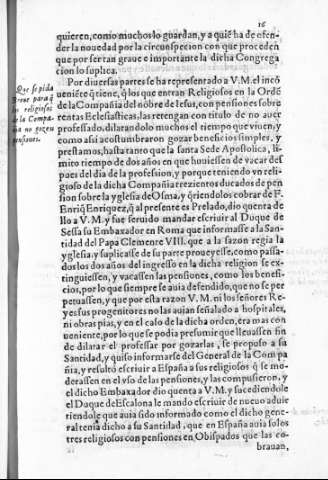 16
quieren, como muchos lo guardan, y a quiē ha de ofen-
der la nouedad por la circunspecion con que proceden
que por ser tan graue e importante la dicha Congrega
cion lo suplica.
Que se pida
Breue para q̄
los religiosos
de la Compa-
ñia no gozen
pensiones.
Por diuersas partes se ha representado a V.M. el incō
ueniēte q̄ tiene, q̄ los que entran Religiosos en la Ordē
de la Compañia del nōbre de Iesus, con pensiones sobre
rentas Eclesiasticas, las retengan con titulo de no auer
professado, dilarandolo muchos el tiempo que viuen, y
como assi acostumbraron gozar beneficios simples, y
prestamos, hasta tanto que la santa Sede Apostolica, li-
mito tiempo de dos años en que huuiessen de vacar des
pues del dia de la profession, y porque teniendo vn reli-
gioso de la dicha Compañia trezientos ducados de pen
sion sobre la yglesia de Osma, y q̄riendolos cobrar de F.
Enriq̄ Enriquez, q̄ al presente es Prelado, dio quenta de
llo a V.M. y fue seruido mandar escriuir al Duque de
Sessa su Embaxador en Roma que informasse a la San-
tidad del Papa Clemente VIII. que a la sazon regia la
yglesia, y suplicasse de su parte proueyesse, como passa-
dos los dos años del ingresso en la dicha religion se ex-
tinguiessen, y vacassen las pensiones, como los benefi-
cios, por lo que siempre se auia defendido, que no se per
petuassen, y que por esta razon V.M. ni los señores Re-
yes sus progenitores no las auian señalado a hospitales,
ni obras pias, y en el caso de la dicha orden, era mas con
ueniente, por lo que se podia presumir que lleuassen fin
de dilarar el professar por gozarlas, se propuso a su
Santidad, y quiso informarse del General de la Com pa
ñia, y resultò escriuir a España a sus religiosos q̄ se mo-
derassen en el vso de las pensiones, y las compusieron, y
el dicho Embaxador dio quenta a V.M. y sucediendole
el Duque de Escalona le mando escriuir de nueuo aduir
riendole que auia sido informado como el dicho gene-
ral tenia dicho a su Santidad, que en España auia solos
tres religiosos con pensiones en Obispados que las co-
brauan,